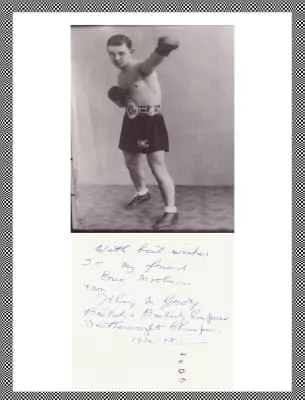 With best wishes
To my friend
from
Johnny McGrory
British & British Empire
Featherweight Champion
1936-38